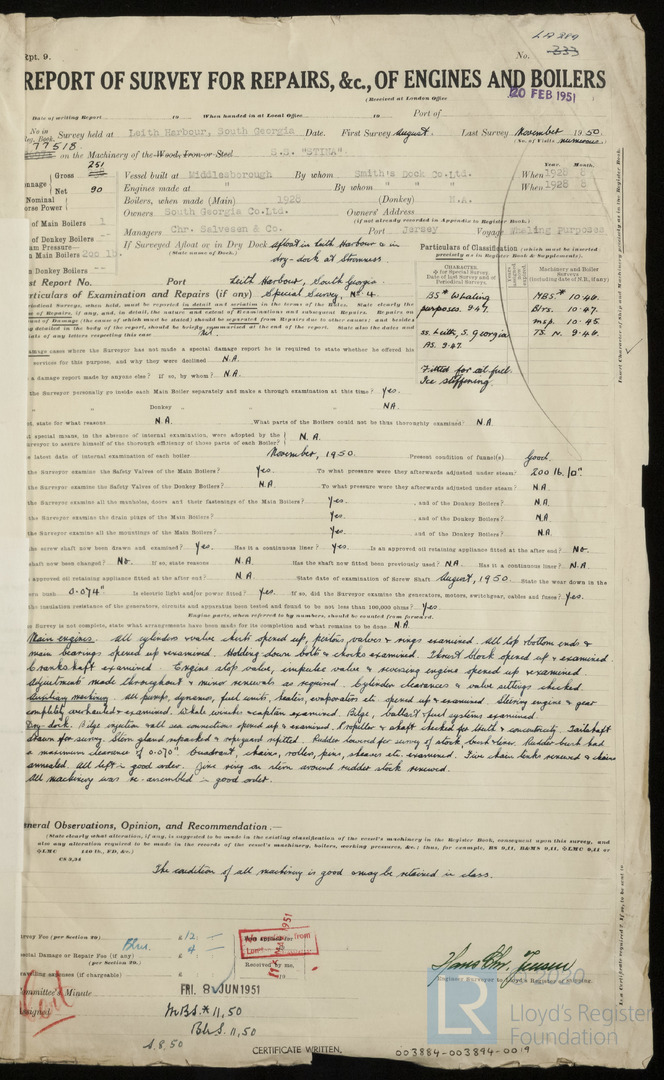 Rpt. 9.
No. 333
REPORT OF SURVEY FOR REPAIRS, &c., OF ENGINES AND BOILERS
(Received at London Office
20 FEB 1951
Date of writing Report 19 When handed in at Local Office 19 Port of
No. in Survey held at Leith Harbour, South Georgia Date. First Survey August. Last Survey November 1950.
Reg. Book. (No. of Visits numerous)
77518 on the Machinery of the Wood, Iron or Steel S.S. "STINA".
Gross 251
Net 90
Year. Month.
Vessel built at Middlesborough By whom Smith's Dock Co. Ltd. When 1928 8
Engines made at " " By whom " " When 1928 8
Boilers, when made (Main) 1928 (Donkey) N.A.
Owners South Georgia Co. Ltd. Owners' Address
(if not already recorded in Appendix to Register Book.)
Managers Chr. Salvesen & Co. Port Jersey Voyage Whaling Purposes
of Main Boilers 1
of Donkey Boilers --
in Main Boilers 200 lb.
in Donkey Boilers --
If Surveyed Afloat or in Dry Dock afloat in Leith Harbour & in
(State name of Dock.) dry-dock at Stromness.
Particulars of Classification (which must be inserted
precisely as in Register Book & Supplements).
Report No. Port Leith Harbour, South Georgia
Particulars of Examination and Repairs (if any) Special Survey, No. 4.
CHARACTER.
Machinery and Boiler Surveys
(including date of N.B., if any)
BS* Whaling
purposes. 9.47.
ss. Leith, S. Georgia
BS. 9.47.
Fitted for oil fuel.
Ice stiffening.
MBS* 10.46.
Blrs. 10.47.
msp. 10.45.
TS. N. 9.46.
nil.
damage cases where the Surveyor has not made a special damage report he is required to state whether he offered his
services for this purpose, and why they were declined N.A.
a damage report made by anyone else? If so, by whom? N.A.
the Surveyor personally go inside each Main Boiler separately and make a thorough examination at this time? Yes.
" " Donkey " " " " " NA.
state for what reasons N.A. What parts of the Boilers could not be thoroughly examined? N.A.
special means, in the absence of internal examination, were adopted by the
Surveyor to assure himself of the thorough efficiency of those parts of each Boiler? N.A.
latest date of internal examination of each boiler November, 1950. Present condition of funnel(s) Good.
the Surveyor examine the Safety Valves of the Main Boilers? Yes. To what pressure were they afterwards adjusted under steam? 200 lb./□".
the Surveyor examine the Safety Valves of the Donkey Boilers? N.A. To what pressure were they afterwards adjusted under steam? N.A.
the Surveyor examine all the manholes, doors and their fastenings of the Main Boilers? Yes. , and of the Donkey Boilers? N.A.
the Surveyor examine the drain plugs of the Main Boilers? Yes. , and of the Donkey Boilers? N.A.
the Surveyor examine all the mountings of the Main Boilers? Yes. , and of the Donkey Boilers? N.A.
the screw shaft now been drawn and examined? Yes. Has it a continuous liner? Yes. Is an approved oil retaining appliance fitted at the after end? No.
shaft now been changed? No. If so, state reasons N.A. Has the shaft now fitted been previously used? NA. Has it a continuous liner? N.A.
approved oil retaining appliance fitted at the after end? N.A. State date of examination of Screw Shaft August, 1950. State the wear down in the
stern bush 0.074" Is electric light and/or power fitted? Yes. If so, did the Surveyor examine the generators, motors, switchgear, cables and fuses? Yes.
the insulation resistance of the generators, circuits and apparatus been tested and found to be not less than 100,000 ohms? Yes.
Engine parts, when referred to by numbers, should be counted from forward.
Survey is not complete, state what arrangements have been made for its completion and what remains to be done. N.A.
Main engines. All cylinders & valve chests opened up, pistons, valves & rings examined. All top & bottom ends &
main bearings opened up & examined. Holding down bolts & chocks examined. Thrust block opened up & examined.
Crankshaft examined. Engine stop valve, impulse valve & reversing engine opened up & examined.
Adjustments made throughout & minor renewals as required. Cylinder clearances & valve settings checked.
Auxiliary machinery. All pumps, dynamos, fuel units, heaters, evaporators etc. opened up & examined. Steering engine & gear
completely overhauled & examined. Whale winch & capstan examined. Bilge, ballast & fuel systems examined.
Dry-dock. Bilge injection & all sea connections opened up & examined. Propeller & shaft checked for truth & concentricity. Tailshaft
drawn for survey. Stern gland repacked & ropeguard refitted. Rudder lowered for survey of stock, bush & liner. Rudder bush had
a maximum clearance of 0.070". Quadrant, chains, rollers, pins, sheaves etc. examined. Five chain links renewed & chains
annealed. All left in good order. One ring on stem around rudder stock renewed.
All machinery was re-assembled in good order.
General Observations, Opinion, and Recommendation.—
(State clearly what alteration, if any, is suggested to be made in the existing classification of the vessel's machinery in the Register Book, consequent upon this survey, and
also any alteration required to be made in the records of the vessel's machinery, boilers, working pressures, &c.; thus, for example, BS 9,11, B&MS 9,11, LMC 9,11 or
LMC 140 lb., FD, &c.)
CS 3,34
The condition of all machinery is good & may be retained in class.
Survey Fee (per Section 29) £ 12 : –
Blrs. £ 4 : –
Special Damage or Repair Fee (if any)
(per Section 29.)
Travelling expenses (if chargeable) £
Received by me,
Hans Chr. Jensen
Engineer Surveyor to Lloyd's Register of Shipping.
Committee's Minute FRI. 8 JUN 1951
Assigned MBS.* 11,50
BLS. 11,50
S. 8,50
CERTIFICATE WRITTEN.
LR
Lloyd's Register
Foundation
003884-003894-0019